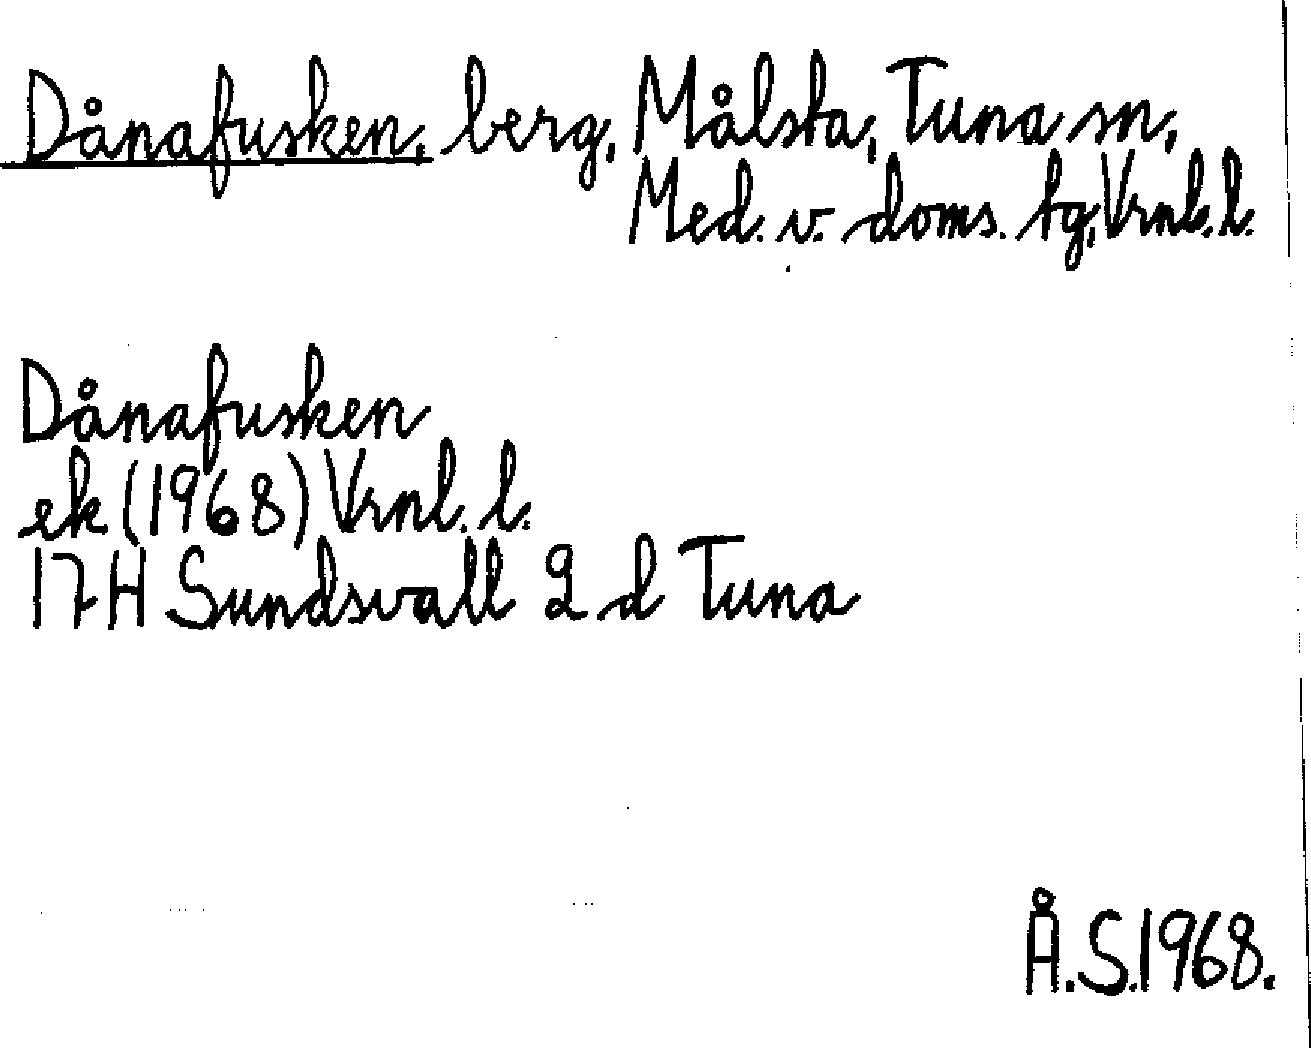 Dånafusken, berg, Målsta, Tuna sn,
Med. v. doms. tg, Vrnl. l.
Dånafusken
ek (1968) Vrnl. l.
17H Sundsvall 2 d Tuna
Å.S.1968.